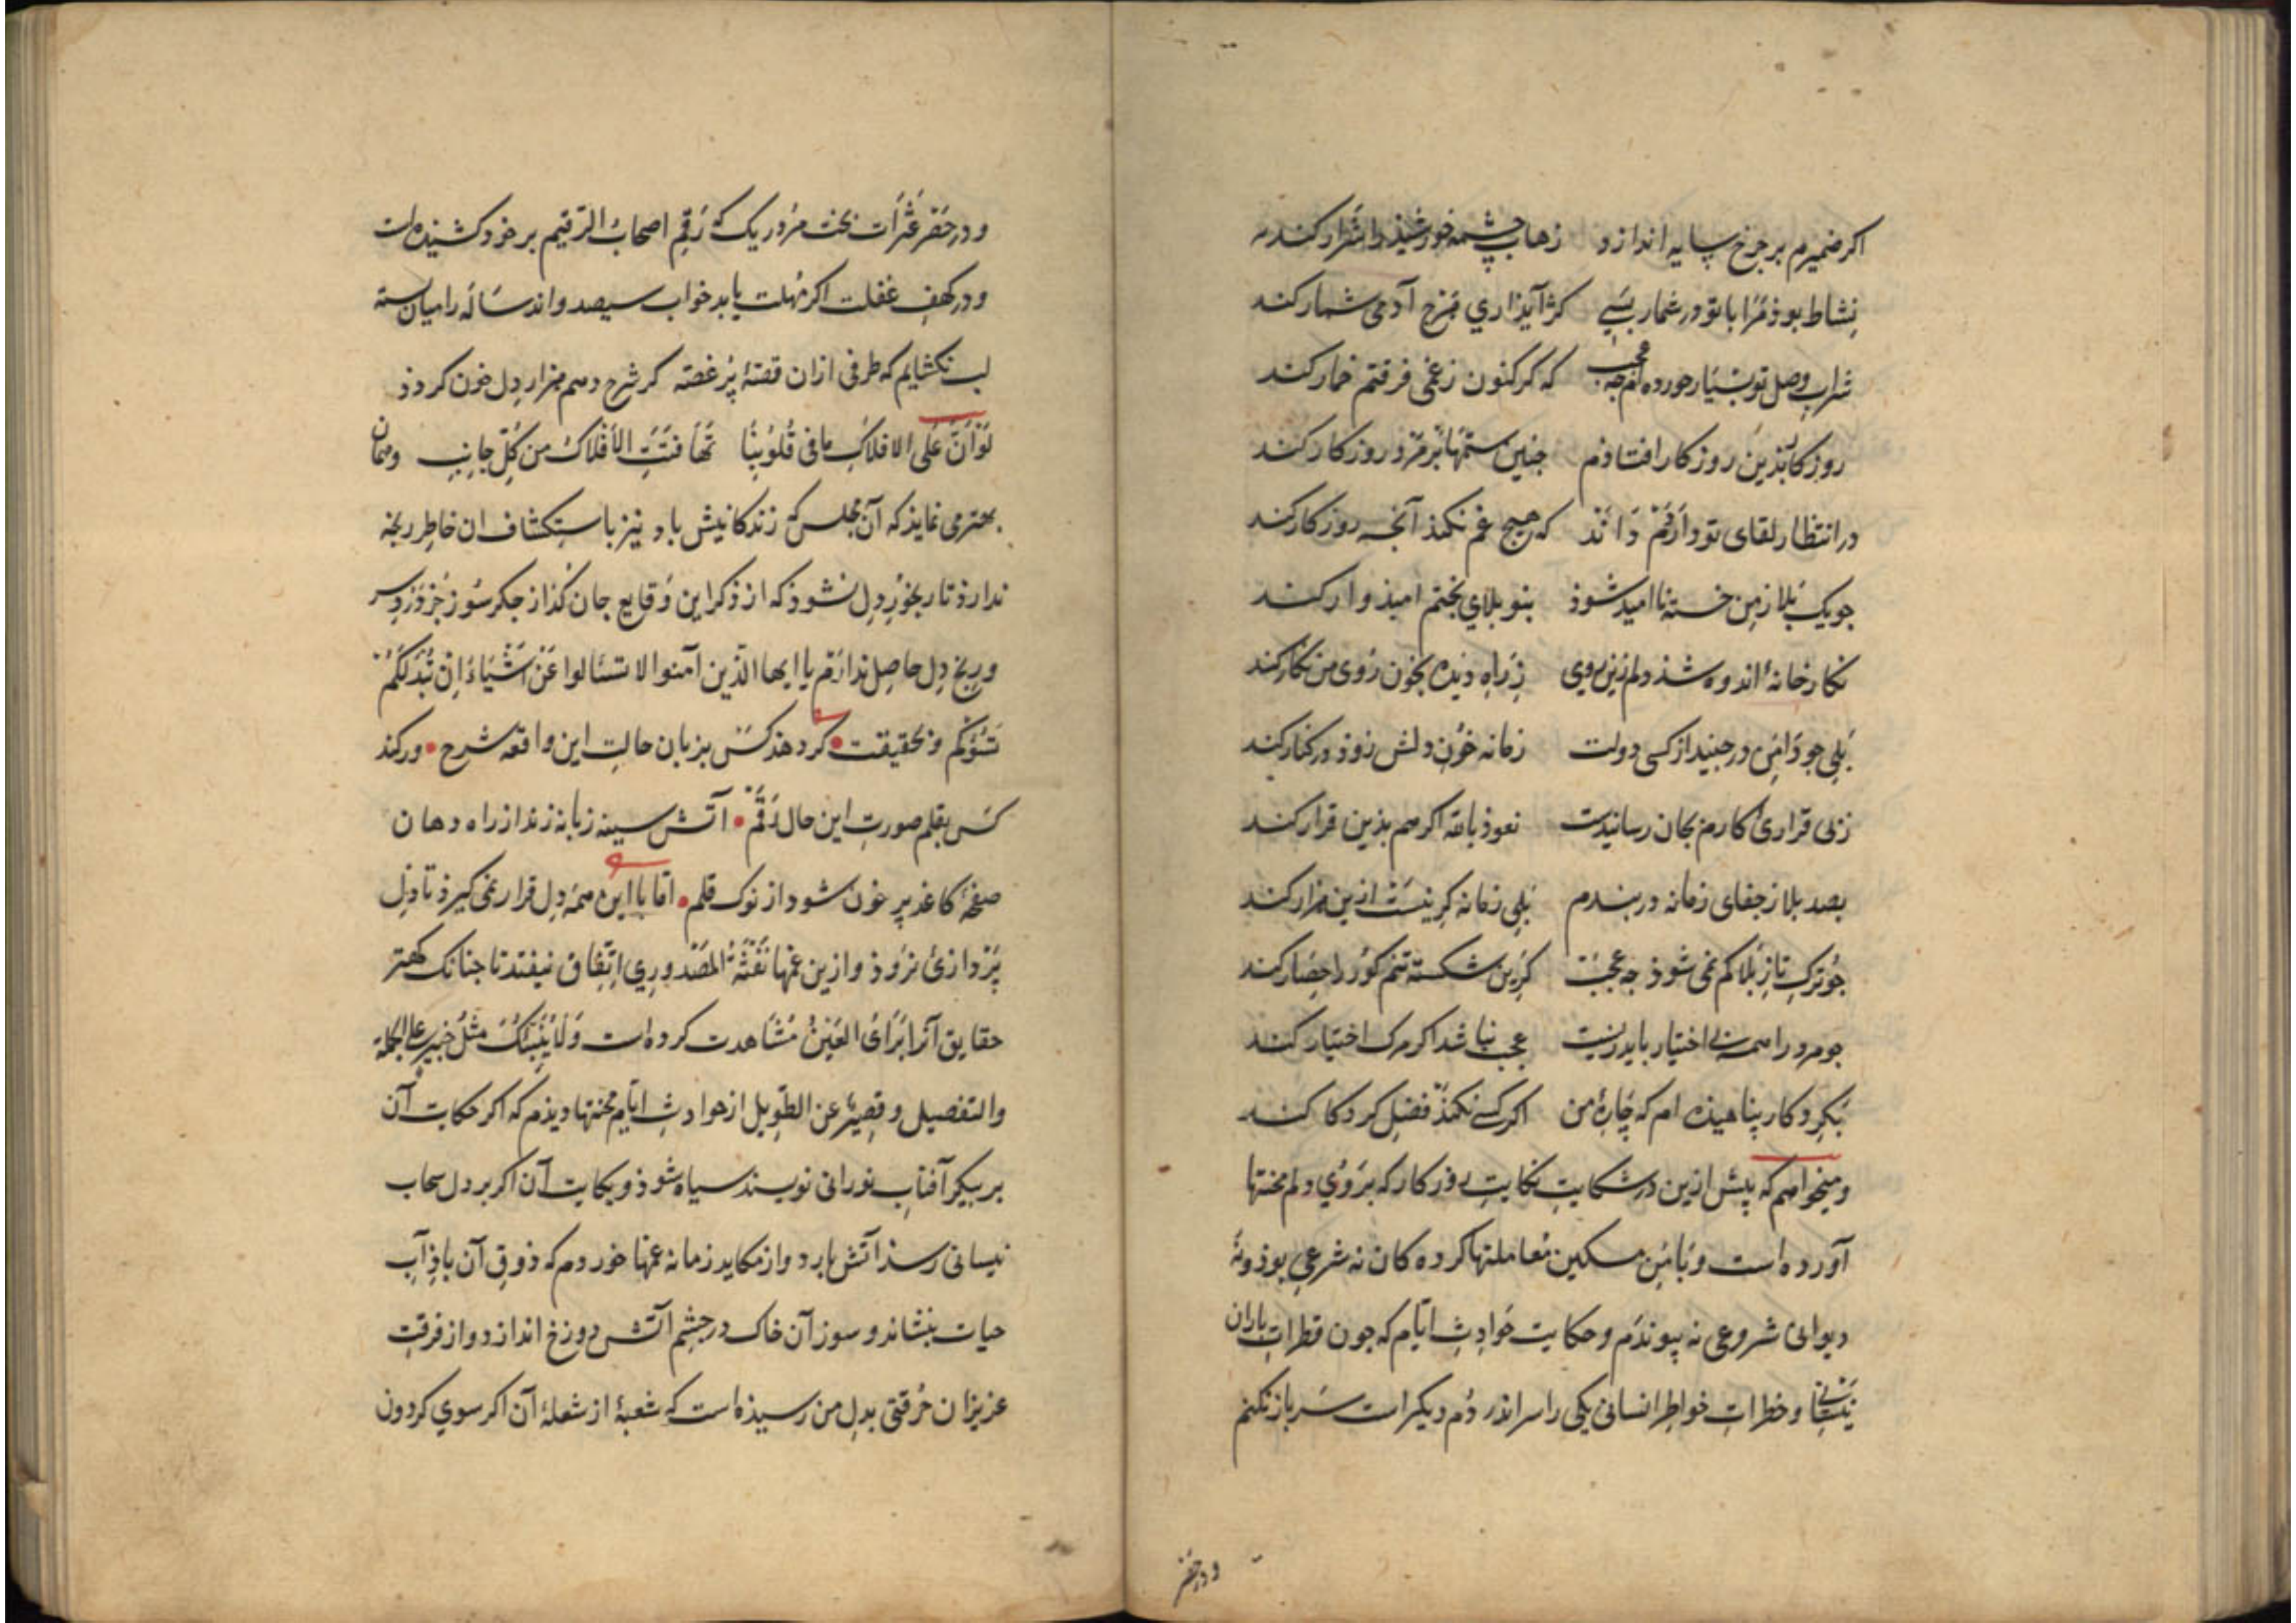 اکر ضمیرم بر چرخ سایه اندازد زهاب چشمه خورشید را شرار کند
نشاط بوذ مرا با تو در شمار بسی کژ آیذ اری هرچ آدمی شمار کند
شراب وصل تو بسیار خورده ام چه عجب که کر کنون ز غمی فرقتم خمار کند
روز کابذین روز کار افتاذم جنین ستمها بر مرد روز کار کند
در انتظار لقای تو دارذم دانذ که هیج غم نکند آنجه روز کار کند
جو یک بلا ز من خسته ناامید شوذ بنو بلای بختم امیذوار کند
نکارخانۀ اندوه شذ دلم زین روی ز راه دیذه بخون روی من نکار کند
بلی جو دامن در جیند از کسی دولت زمانه خون دلش زوذ در کنار کند
ز بی قراری کارم بجان رسانیدست نعوذ بالله اکر هم بذین قرار کند
بصد بلا ز جفای زمانه دربندم بلی زمانه کر نیست ازین هزار کند
جو ترک تاز بلا کم نمی شوذ جه عجب کزین شکسته تنم کور را حصار کند
جو مرد را همه بی اختیار باید زیست عجب نباشد اکر مرک اختیار کند
بکردکار پناهیذه ام که چارۀ من اکر کسی نکند فضل کردکار کند
و میخواهم که پیش ازین در شکایت نکایت روزکار که بروی دلم محنتها
آورده است و با من مسکین معاملتها کرده کان نه شرعی بوذ و نه
دیوانی شروعی نه پیوندم و حکایت حوادث ایام که جون قطرات باران
نیسانی و خطرات خواطر انسانی یکی را سر اندر دُم دیکر است سر باز نکنم
و در حفر
و در حفر عثرات بخت مزور یک که رقم اصحاب الرقیم بر خود کشیده است
و در کهف غفلت اکر مهلت یابد خواب سیصد و اند ساله را میان بسته
لب نکشایم که طرفی ازان قصۀ پر غصه کر شرح دهم هزار دل خون کردذ
لَوْ اَنَّ عَلَی الافلاک ما فی قُلُوبِنَا تَهَافَتَتِ الاَفْلاکُ من کُلِّ جانِبِ و همان
بهتر می نمایذ که آن مجلس که زندکانیش باد نیز باستکشاف ان خاطر رنجه
ندارذ تا رنجور دل نشوذ که از ذکر این وقایع جان کذاز جکر سوز جز درد سر
و رنج دل حاصل ندارم یا ایها الذین آمنوا لا تسئالوا عَنْ اَشْیَاءَ اِنْ تُبْدَ لَکُمْ
تَسُؤْکُم و بحقیقت کر دهذ کس بزبان حالت این واقعه شرح ور کند
کس بقلم صورت این حال رقم آتش سینه زبانه زند از راه دهان
صفحۀ کاغذ پر خون شود از نوک قلم اما با این همه دل قرار نمی کیرذ تا دل
پردازی نروذ و ازین غمها نَفْثَةُ المَصْدوری اتفاق نیفتد تا جنانک کهتر
حقایق آنرا بَرَاَی العَیْن مشاهدت کرده است وَلَا یُنَبِّئُکَ مِثْلُ خَبِیر علی الجملة
والتفصیل و قصیر عن الطویل از حوادث ایام محنتها دیذم که اکر حکایت آن
بر پیکر آفتاب نورانی نویسند سیاه شوذ و بکایت آن اکر بر دل سحاب
نیسانی رسذ آتش بارد و از مکاید زمانه غمها خوردم که ذوق آن باذ آب
حیات بنشاند و سوز آن خاک در چشم آتش دوزخ اندازد و از فرقت
عزیزان حُرقتی بدل من رسیذه است که شعبۀ از شعلۀ آن اکر سوی کردون